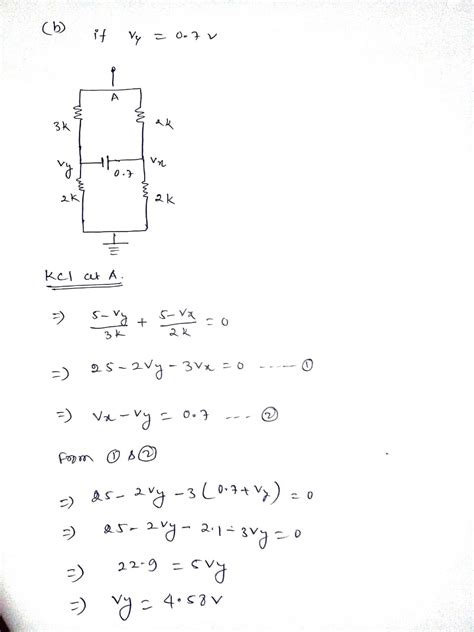 (b) if Vy = 0.7 V
A
3k 2k
Vy 0.7 Vx
2k 2k
KCl at A.
⇒) 5-Vy/3k + 5-Vx/2k = 0
⇒) 25-2Vy-3Vx=0 ----- ①
⇒) Vx-Vy = 0.7 --- ②
From ① & ②
⇒) 25-2Vy-3(0.7+Vy) = 0
⇒) 25-2Vy-2.1-3Vy=0
⇒) 22.9 = 5Vy
⇒) Vy = 4.58V